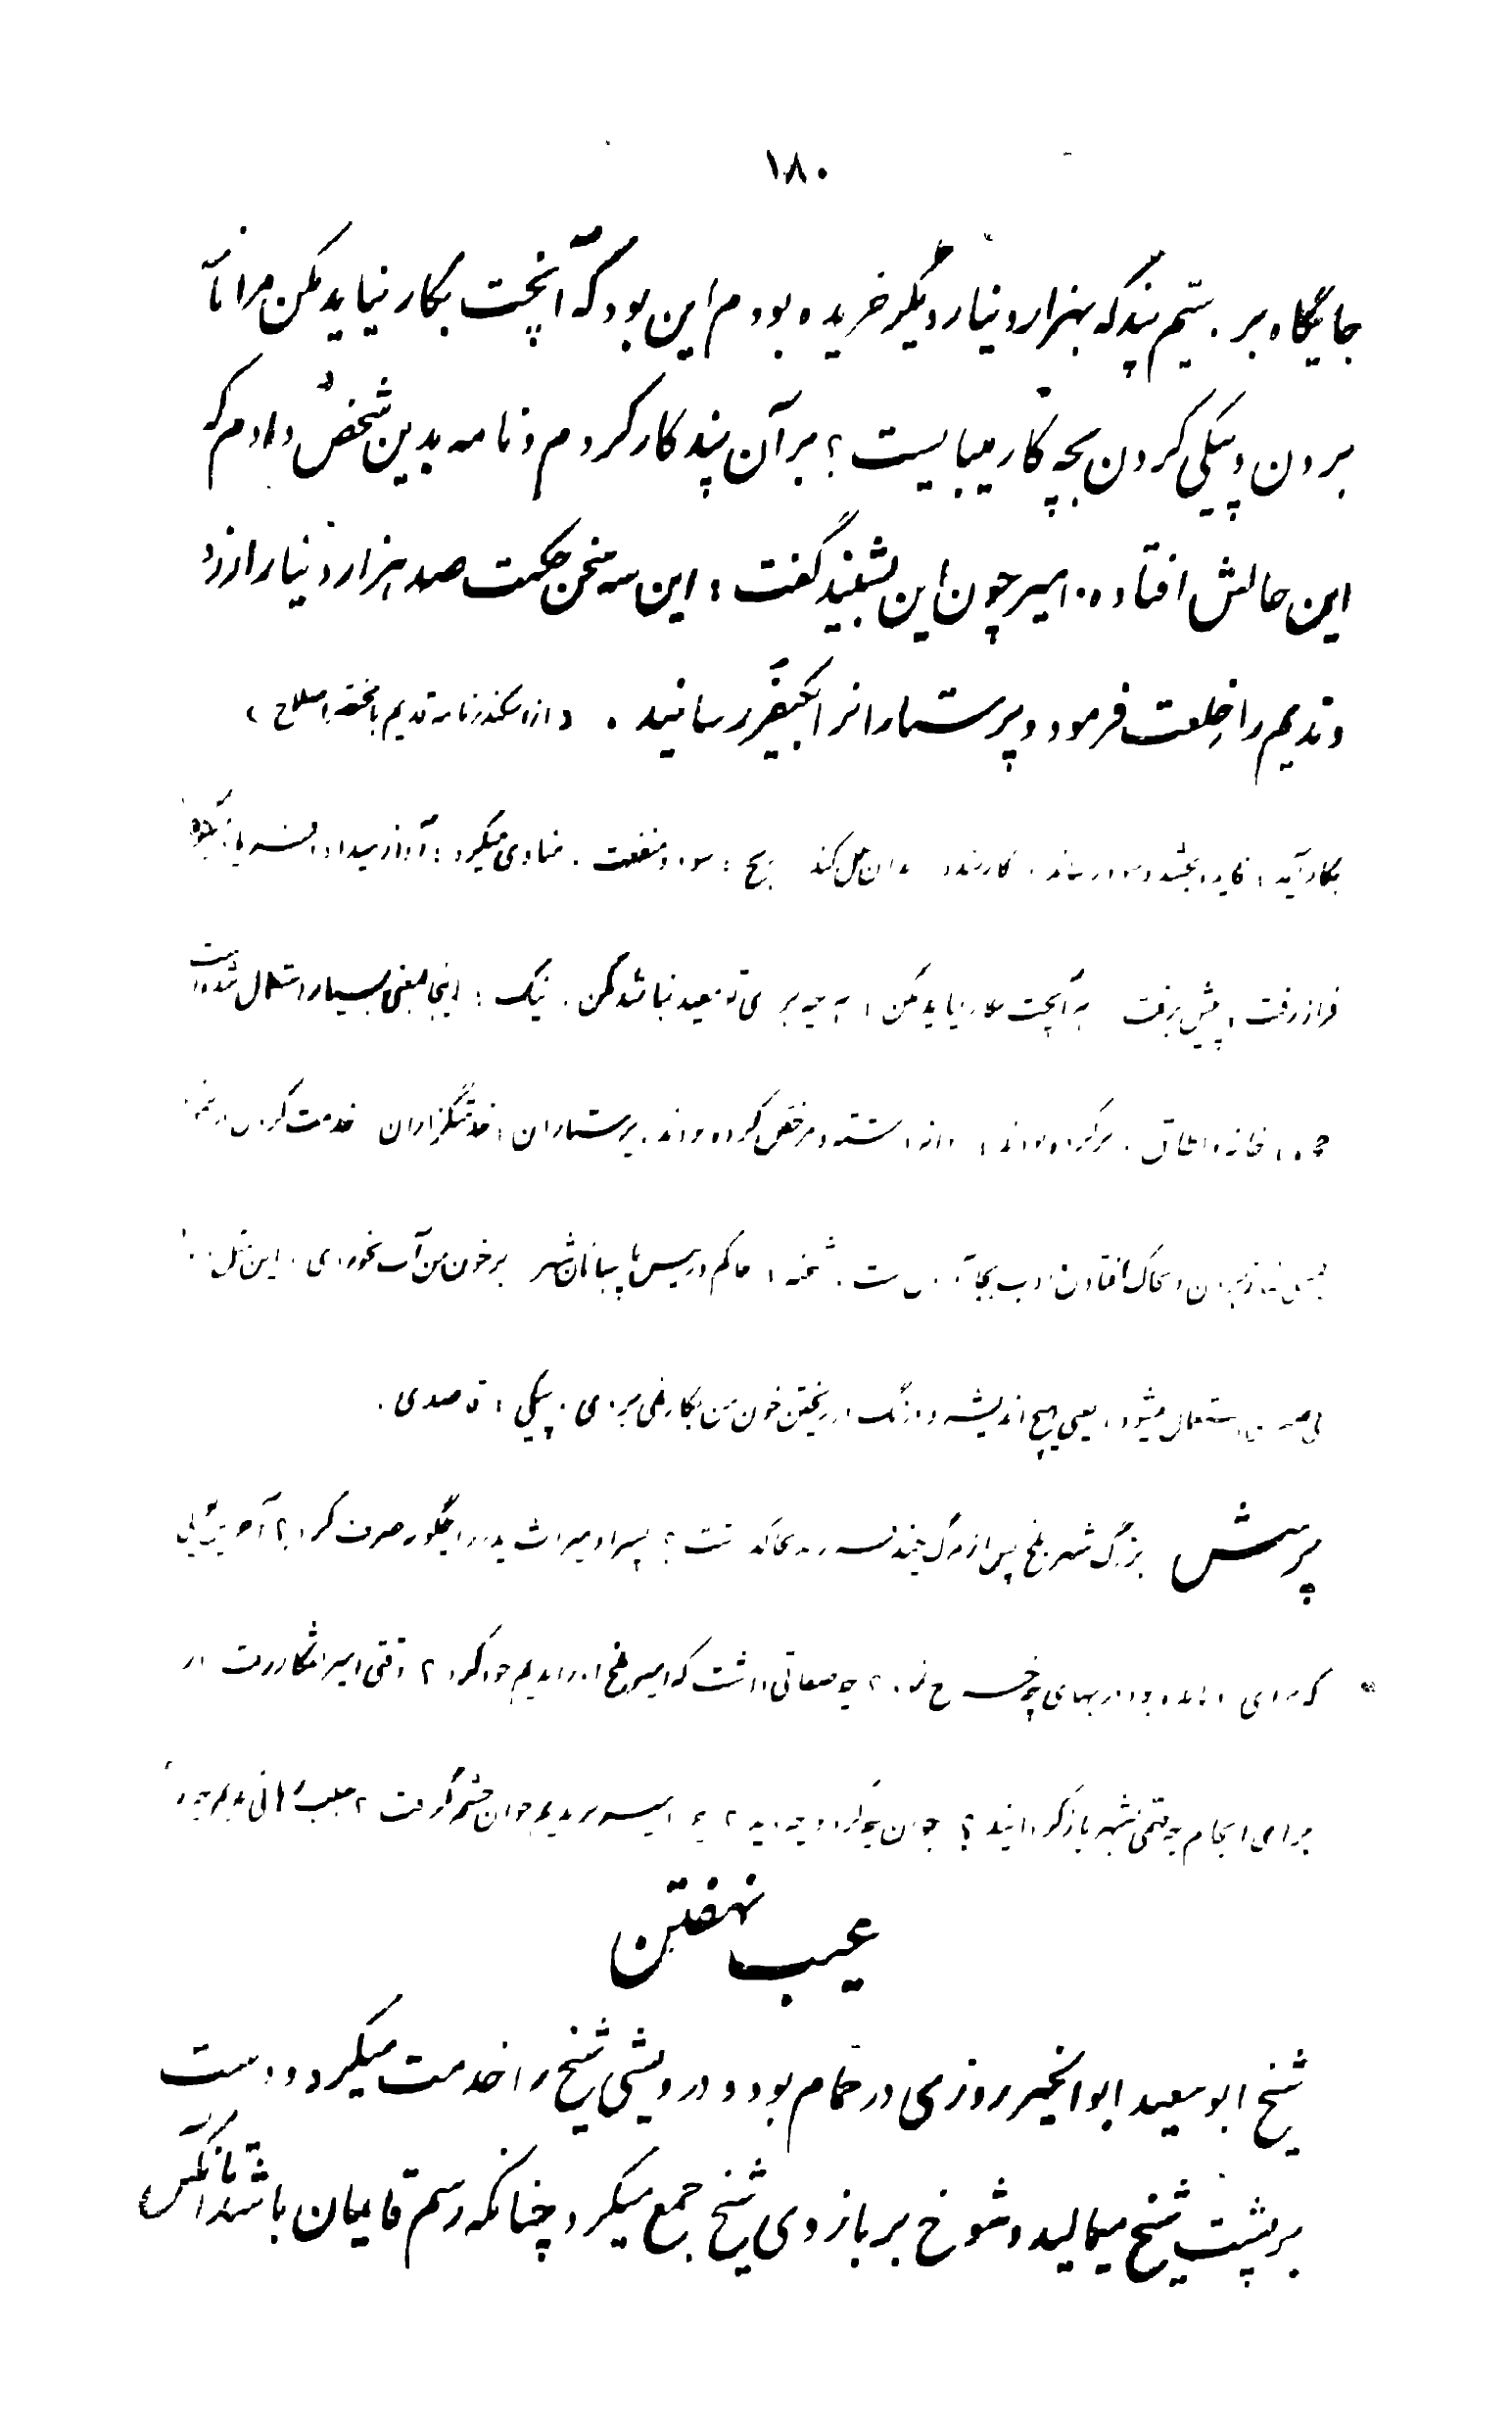 ۱۸۰
جایگاه بر. سیّم پند که بهزار دینار دیگر خریده بودم این بود که آنچت بکار نیاید مکن مرا نامه
بردن و پیکی کردن بچه کار میبایست؟ بر آن پند کار کردم و نامه بدین شخص دادم که
این حالش افتاد. امیر چون این بشنید گفت: این سه سخن حکمت صد هزار دینار ارزد
و ندیم را خلعت فرمود و پرستار را بکیفر رسانید. (از اسکندرنامه قدیم با مختصر اصلاح)
بکار آید: فایده بخشد و سود رساند. کار بندد: بدان عمل کند ربح: سود و منفعت. منادی میکرد: آواز میداد.
فراز رفت: پیش رفت آنچت بکار نیاید مکن: آنچه برای تو مفید نباشد مکن. نیک: اینجا بمعنی بسیار استعمال شده است
خانه: اطاق. پرستاران: خدمتگزاران خدمت کردن
شحنه: حاکم و رییس پاسبانان شهر بر خون من آب نخوردی: این مثل
استعمال میشود. یعنی هیچ اندیشه و درنگ در ریختن خون من بکار نمی بردی. پیکی: قاصدی.
پرسش بزرگ شهر بلخ پس از مرگ چند پسر گذاشت؟ پسر او میراث پدر را چگونه صرف کرد؟
که برای او مانده بود در بهای چه خرج نمود؟ چه صفاتی داشت که امیر بلخ او را ندیم خود کرد؟ وقتی امیر بشکار رفت
برای انجام چه مهمّی بشهر بازگردانید؟ جوان چه کرد و چه دید؟ چرا امیر بر ندیم جوان خشم گرفت؟
عیب نهفتن
شیخ ابوسعید ابوالخیر روزی در حمّام بود و درویشی شیخ را خدمت میکرد و دست
بر پشت شیخ میمالید و شوخ بر بازوی شیخ جمع میکرد چنانکه رسم قایمان باشد تا آنکس